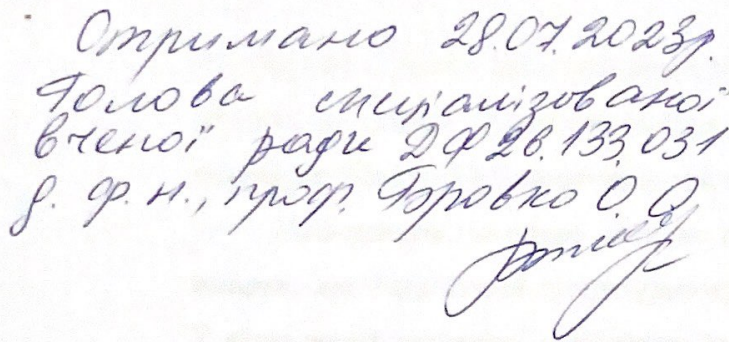 Отримано 28.07.2023р.
Голова спеціалізованої
вченої ради ДФ 26.133.031
д. ф. н., проф. Боровко О. О.